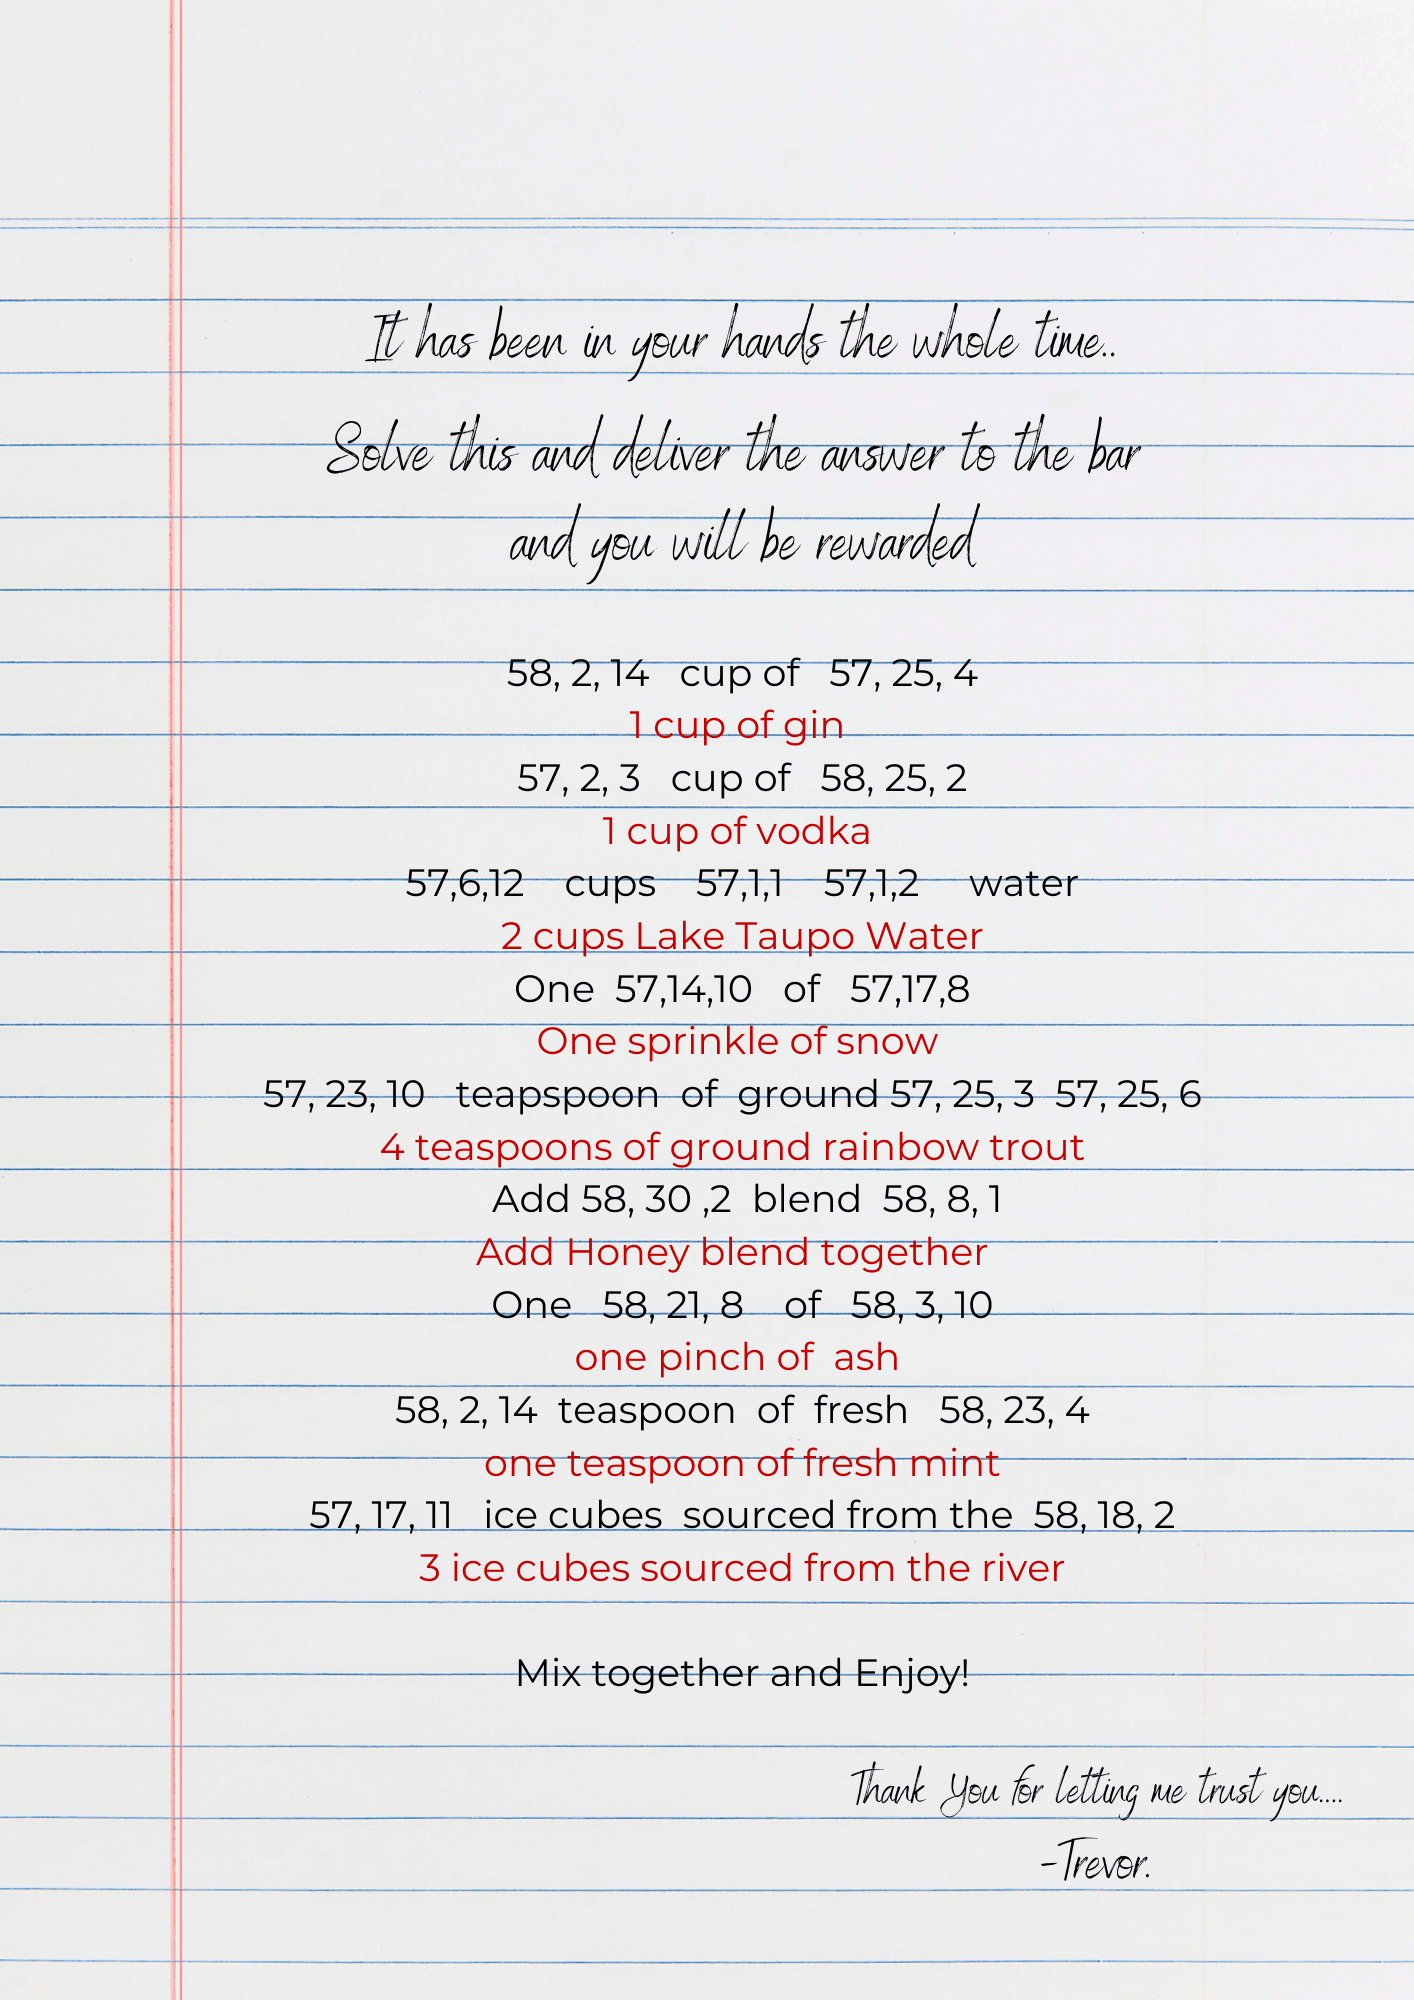 It has been in your hands the whole time..
Solve this and deliver the answer to the bar
and you will be rewarded
58, 2, 14 cup of 57, 25, 4
1 cup of gin
57, 2, 3 cup of 58, 25, 2
1 cup of vodka
57,6,12 cups 57,1,1 57,1,2 water
2 cups Lake Taupo Water
One 57,14,10 of 57,17,8
One sprinkle of snow
57, 23, 10 teapspoon of ground 57, 25, 3 57, 25, 6
4 teaspoons of ground rainbow trout
Add 58, 30 ,2 blend 58, 8, 1
Add Honey blend together
One 58, 21, 8 of 58, 3, 10
one pinch of ash
58, 2, 14 teaspoon of fresh 58, 23, 4
one teaspoon of fresh mint
57, 17, 11 ice cubes sourced from the 58, 18, 2
3 ice cubes sourced from the river
Mix together and Enjoy!
Thank You for letting me trust you....
-Trevor.